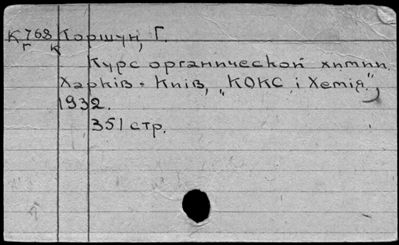 К 768 Коршун, Г.
г к
Курс органической химии.
Харків - Київ, „КОКС і Хемія",
1932.
351 стр.